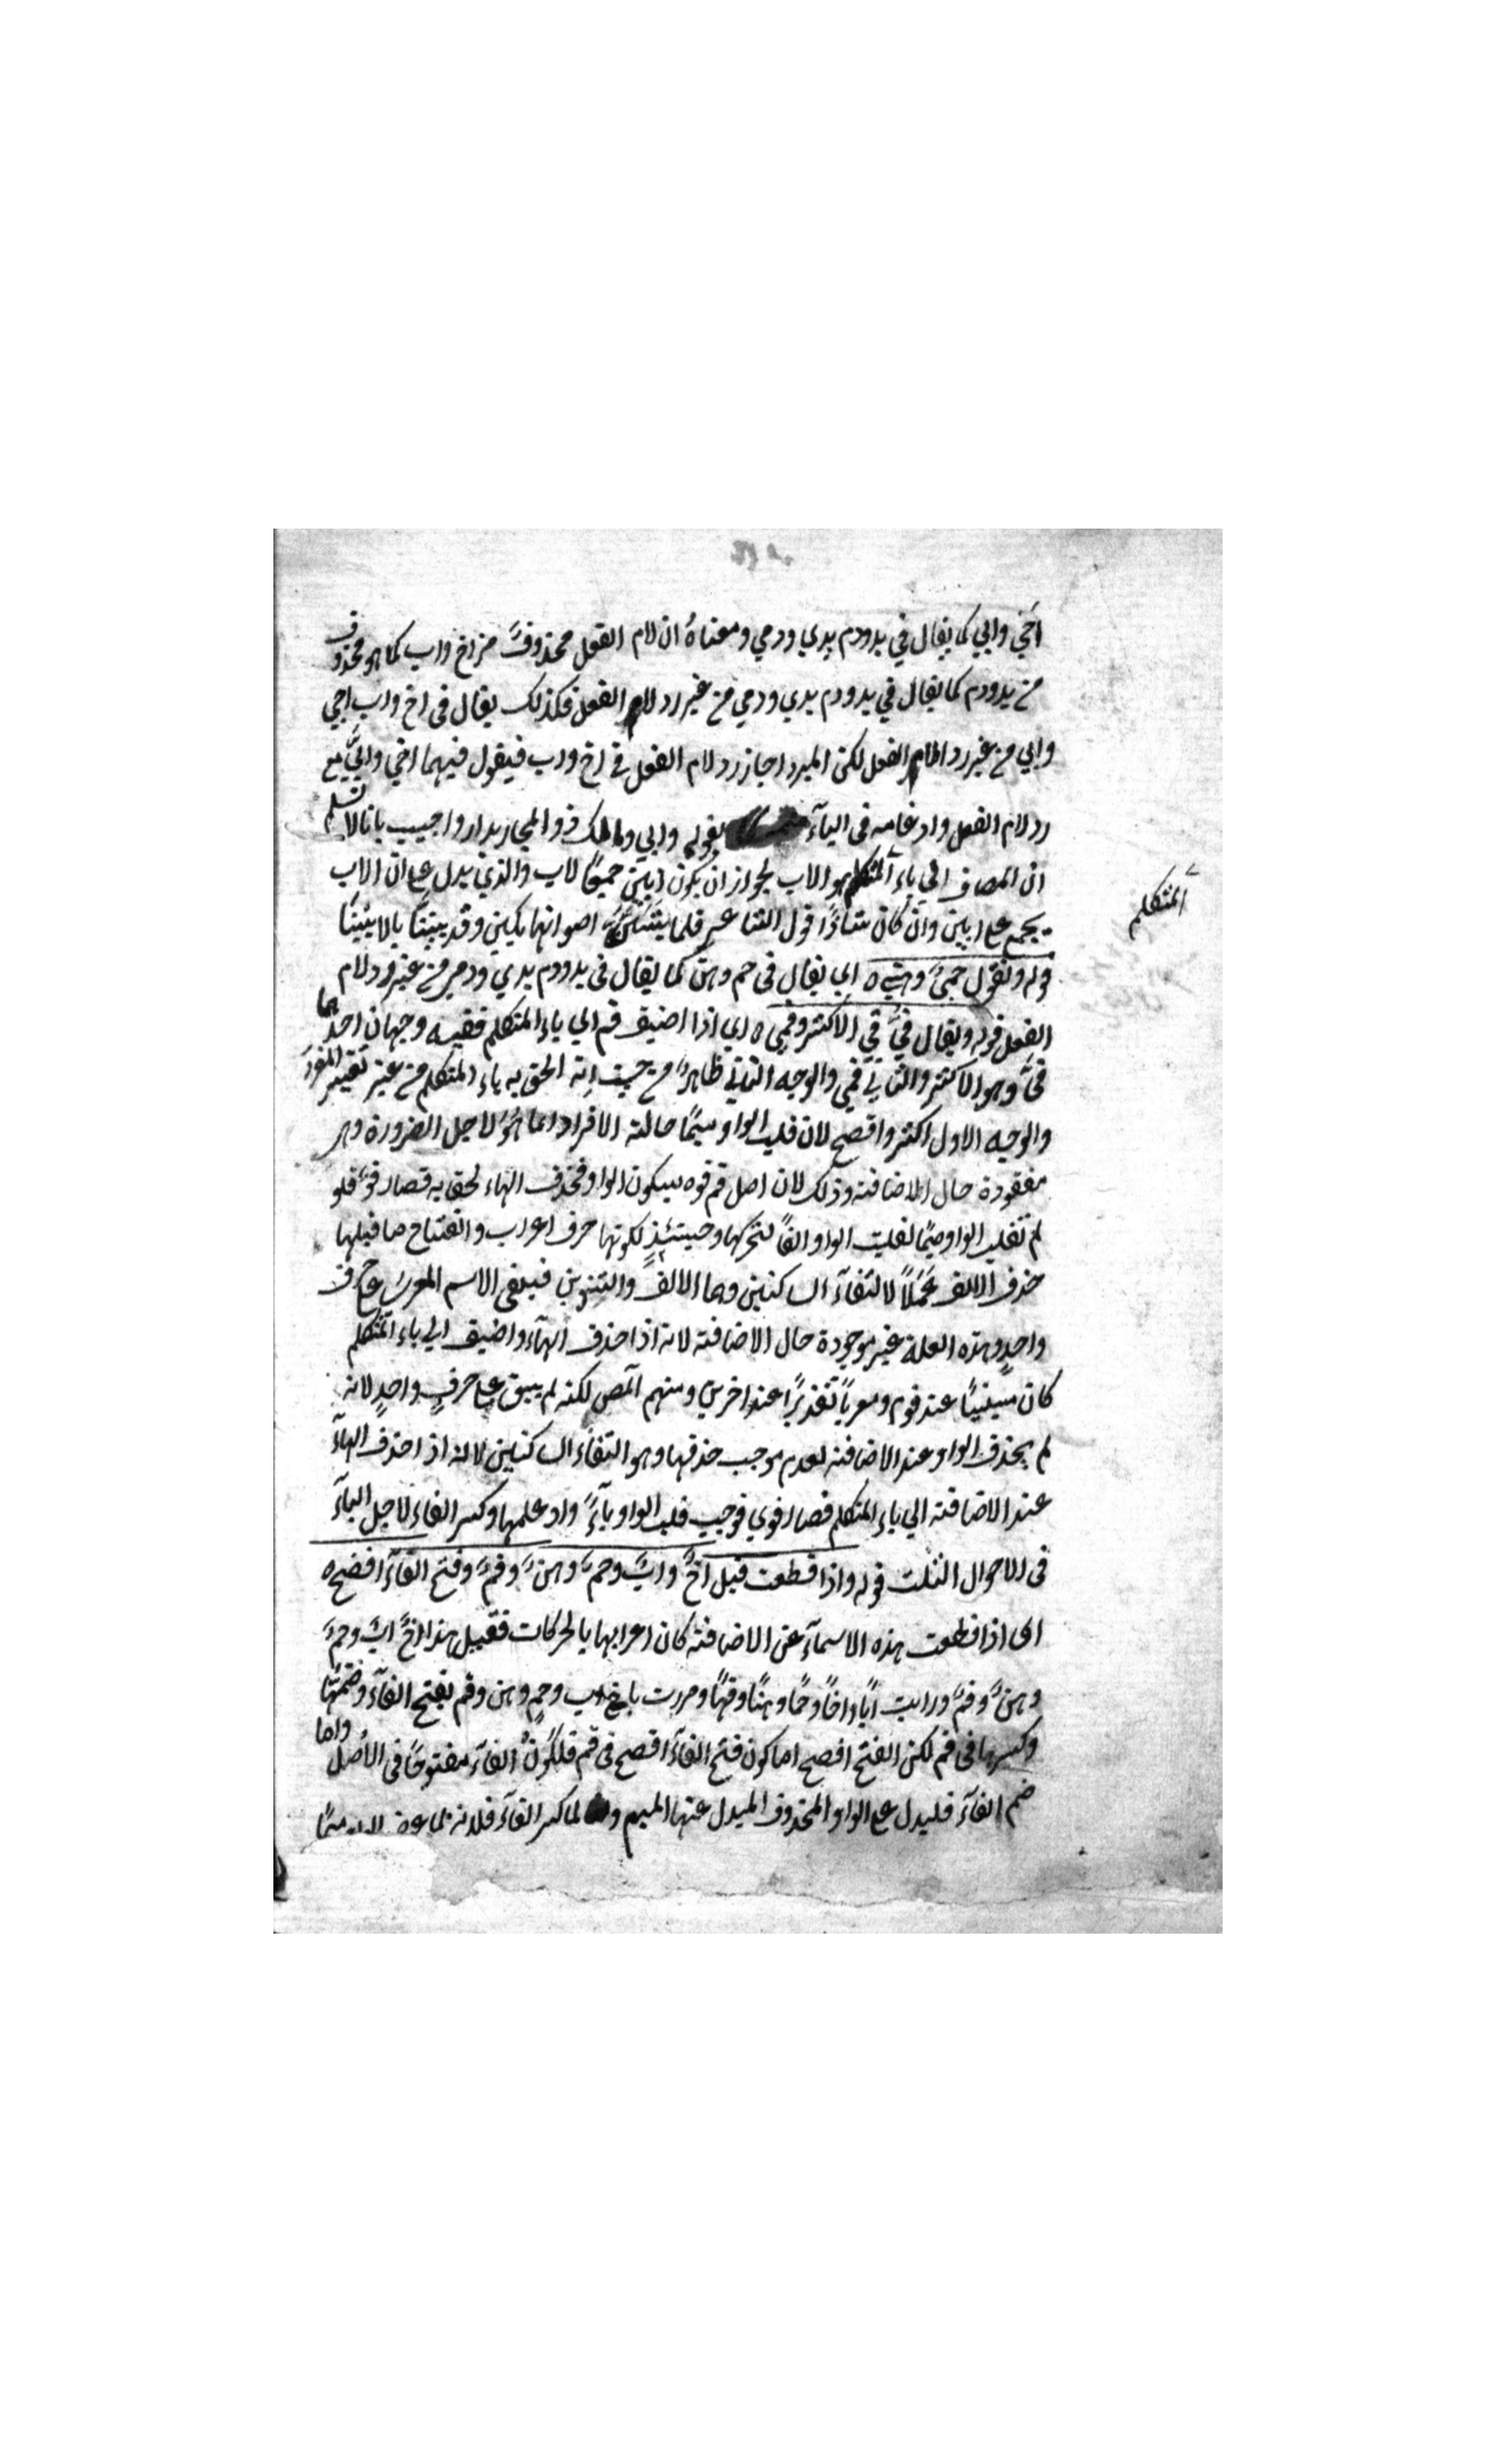 اخي وابي كما يقال في يد ودم يدي ودمي ومعناهُ ان لام الفعل محذوفة من اخ واب كما هو محذوف
من يد ودم كما يقال في يد ودم يدي ودمي من غير رد لام الفعل فكذلك يقال في اخ واب اخي
وابي من غير رد لام الفعل لكن المبرد اجاز رد لام الفعل في اخ واب فيقول فيهما اخي وابيَّ مع
رد لام الفعل وادغامه في الياء بقوله وابي ومالك ذو المجاز بدار واجيب بانا لا نسلم
ان المضاف الي ياء المتكلم هو الاب لجواز ان يكون ابين جمعًا لاب والذي يدل على ان الاب
يجمع على ابين وان كان شاذًا قول الشاعر فلما اصواتنا بكين وفديننا بالابينا
قوله وتقول حمي وهني اي يقال في حم وهن كما يقال في يد ودم يدي ودمي من غير رد لام
الفعل قوله ويقال فيَّ في الاكثر وفمي اي اذا اضيف فم الي ياء المتكلم ففيه وجهان احدهما
فيَّ وهو الاكثر والثاني فمي والوجه الثاني ظاهر من حيث انه الحق به ياء المتكلم من غير تغيير المفرد
والوجه الاول اكثر وافصح لان قلب الواو ميمًا حالة الافراد انما هو لاجل الضرورة وهي
مفقودة حال الاضافة وذلك لان اصل فم فوه بسكون الواو فحذف الهاء لحق به فصار فو فلو
لم تقلب الواو ميمًا لقلبت الواو الفًا لتحركها وحينئذٍ لكونها حرف اعراب وانفتاح ما قبلها
حذف الالف لالتقاء الساكنين وهما الالف والتنوين فيبقى الاسم المعرب على حرف
واحدٍ وهذه العلة غير موجودة حال الاضافة لانه اذا حذف الهاء واضيف الي ياء المتكلم
كان مبنيًا عند قوم ومعربًا تقديرًا عند اخرين ومنهم المص لكنه لم يبق على حرفٍ واحدٍ لانه
لم يحذف الواو عند الاضافة لعدم موجب حذفها وهو التقاء الساكنين لانه اذا حذف الهاء
عند الاضافة الي ياء المتكلم فصار فوي فوجب قلب الواو ياءً وادغامها وكسر الفاء لاجل الياء
في الاحوال الثلث قوله واذا قطعت قيل اخٌ وابٌ وحمٌ وهنٌ وفمٌ وفتح الفاء افصح
اى اذا قطعت هذه الاسماء عن الاضافة كان اعرابها بالحركات فقيل هذا اخٌ ابٌ وحمٌ
وهنٌ وفمٌ ورايت ابًا واخًا وحمًا وهنًا وفمًا ومررت باخٍ واب وحمٍ وهن وفم بفتح الفاء وضمها
وكسرها في فم لكن الفتح افصح اما كون فتح الفاء افصح في فم فلكون الفاء مفتوحًا في الاصل واما
ضم الفاء فليدل على الواو المحذوف المبدل عنها الميم واما كسر الفاء فلانه لما عوض ميمًا
المتكلم